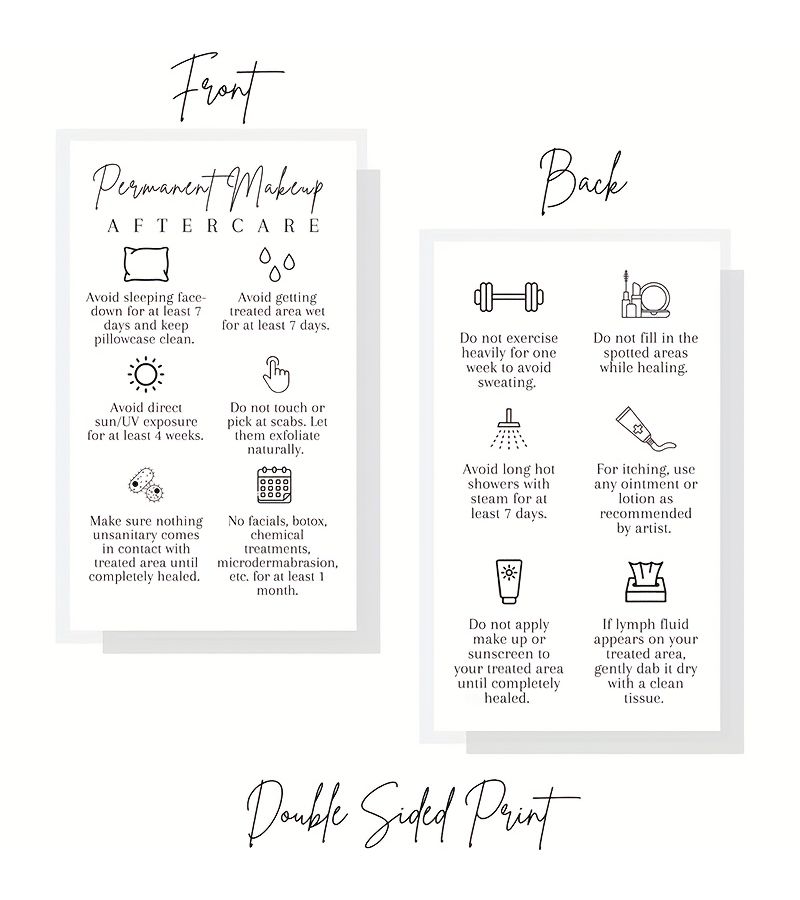 Front
Permanent Makeup
AFTERCARE
Avoid sleeping face-
down for at least 7
days and keep
pillowcase clean.
Avoid getting
treated area wet
for at least 7 days.
Avoid direct
sun/UV exposure
for at least 4 weeks.
Do not touch or
pick at scabs. Let
them exfoliate
naturally.
Make sure nothing
unsanitary comes
in contact with
treated area until
completely healed.
No facials, botox,
chemical
treatments,
microdermabrasion,
etc. for at least 1
month.
Back
Do not exercise
heavily for one
week to avoid
sweating.
Do not fill in the
spotted areas
while healing.
Avoid long hot
showers with
steam for at
least 7 days.
For itching, use
any ointment or
lotion as
recommended
by artist.
Do not apply
make up or
sunscreen to
your treated area
until completely
healed.
If lymph fluid
appears on your
treated area,
gently dab it dry
with a clean
tissue.
Double Sided Print